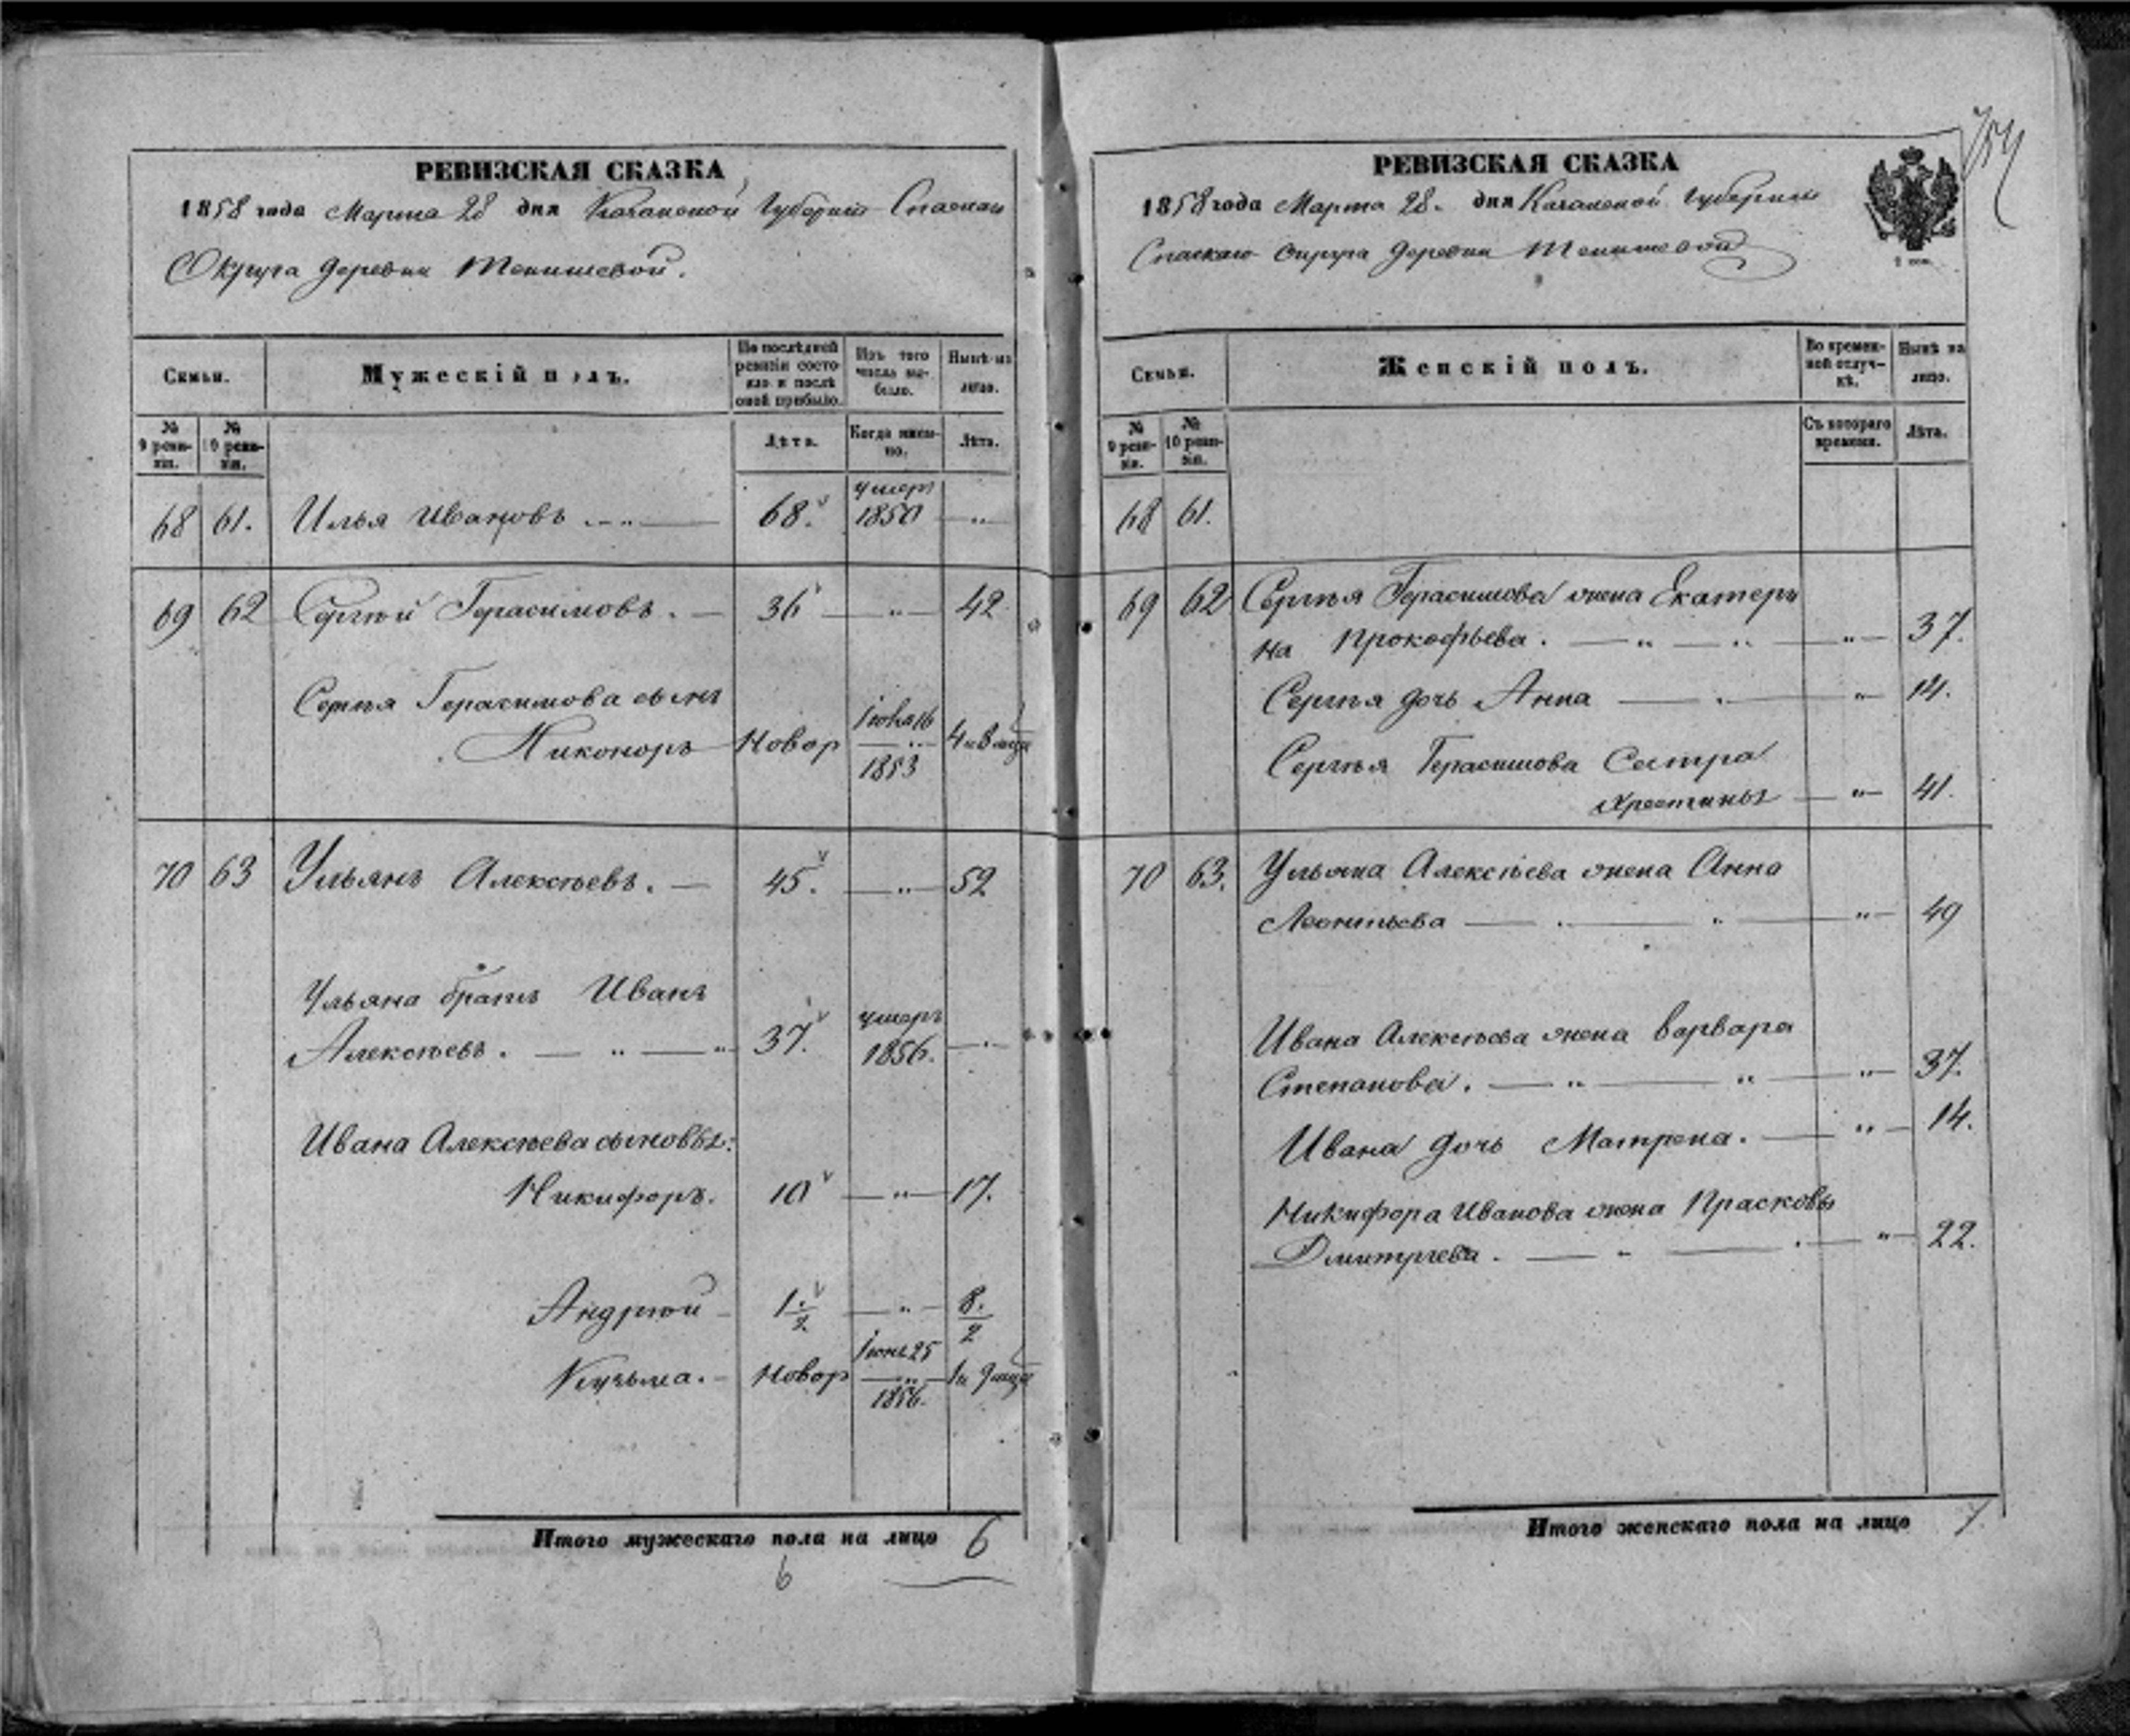 754
РЕВИЗСКАЯ СКАЗКА
1858 года Марта 28 дня Казанской Губернiи Спаскаго
Округа деревни Тенишевой.
Семьи.
Мужескiй полъ.
По послѣдней ревизiи состояло и послѣ оной прибыло.
Изъ того числа выбыло.
Нынѣ на лицо.
№ 9 ревизiи.
№ 10 ревизiи.
Лѣта.
Когда именно.
Лѣта.
68 61. Илья Ивановъ 68. умеръ 1850 "
69 62 Сергѣй Герасимовъ. 36 " 42
Сергѣя Герасимова сынъ
Никоноръ Новор 1853 4 и 8 мца
70 63 Ульянъ Алексѣевъ. 45. " 52
Ульяна братъ Иванъ
Алексѣевъ. 37. умеръ 1856.
Ивана Алексѣева сыновья:
Никифоръ. 10 " 17.
Андрей 1. 1/2 " 8. 1/2
Кузьма. Новор Iюня 25 1856. 1 и 9 мца
Итого мужескаго пола на лицо 6
6
РЕВИЗСКАЯ СКАЗКА
1858 года Марта 28. дня Казанской Губернiи
Спаскаго округа деревни Тенишевой
Семьи.
Женскiй полъ.
Во временной отлучкѣ.
Нынѣ на лицо.
№ 9 ревизiи.
№ 10 ревизiи.
Съ котораго времени.
Лѣта.
68 61.
69 62 Сергѣя Герасимова жена Екатери
на Прокофьева. " 37.
Сергѣя дочь Анна " 14.
Сергѣя Герасимова Сестра
Христинья " 41.
70 63. Ульяна Алексѣева жена Анна
Леонтьева " 49
Ивана Алексѣева жена Варвара
Степанова. " 37.
Ивана дочь Матрена. " 14.
Никифора Иванова жена Прасковья
Дмитрiева. " 22.
Итого женскаго пола на лицо 7.